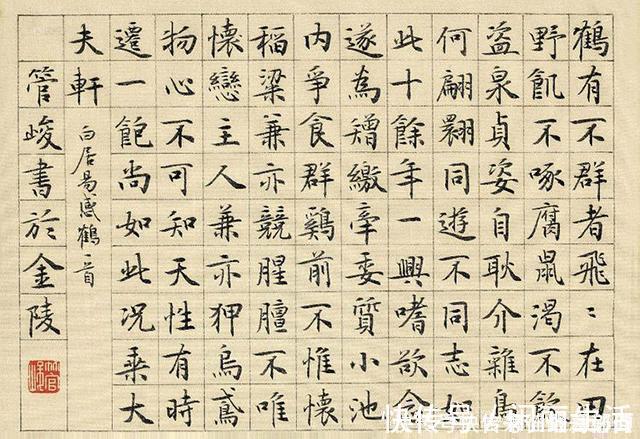 鶴有不群者飛〻在田
野飢不啄腐鼠渴不飲
盜泉貞姿自耿介雜鳥
何翩翾同遊不同志如
此十餘年一興嗜欲念
遂為矰繳牽委質小池
內爭食群鷄前不惟懷
稻粱兼亦競腥膻不唯
懷戀主人兼亦狎烏鳶
物心不可知天性有時
遷一飽尚如此況乘大
夫軒
白居易感鶴一首
管峻書於金陵
管峻